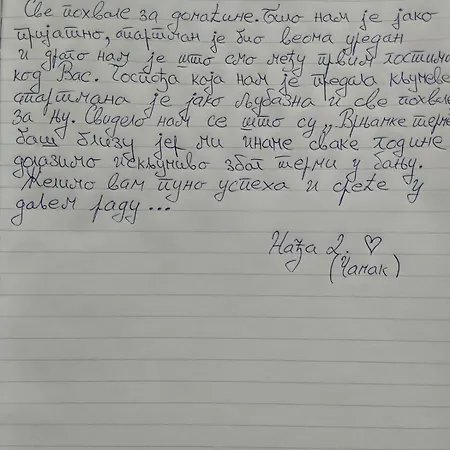 Све похвале за домаћине. Било нам је јако
пријатно, апартман је био веома уредан
и драго нам је што смо међу првим гостима
код Вас. Госпођа која нам је предала кључеве
апартмана је јако љубазна и све похвале
за њу. Свидело нам се што су „Врњачке терме
баш близу јер ми иначе сваке године
долазимо искључиво због терми у бању.
Желимо вам пуно успеха и среће у
даљем раду...
Нађа 2. ♡
(Чачак)